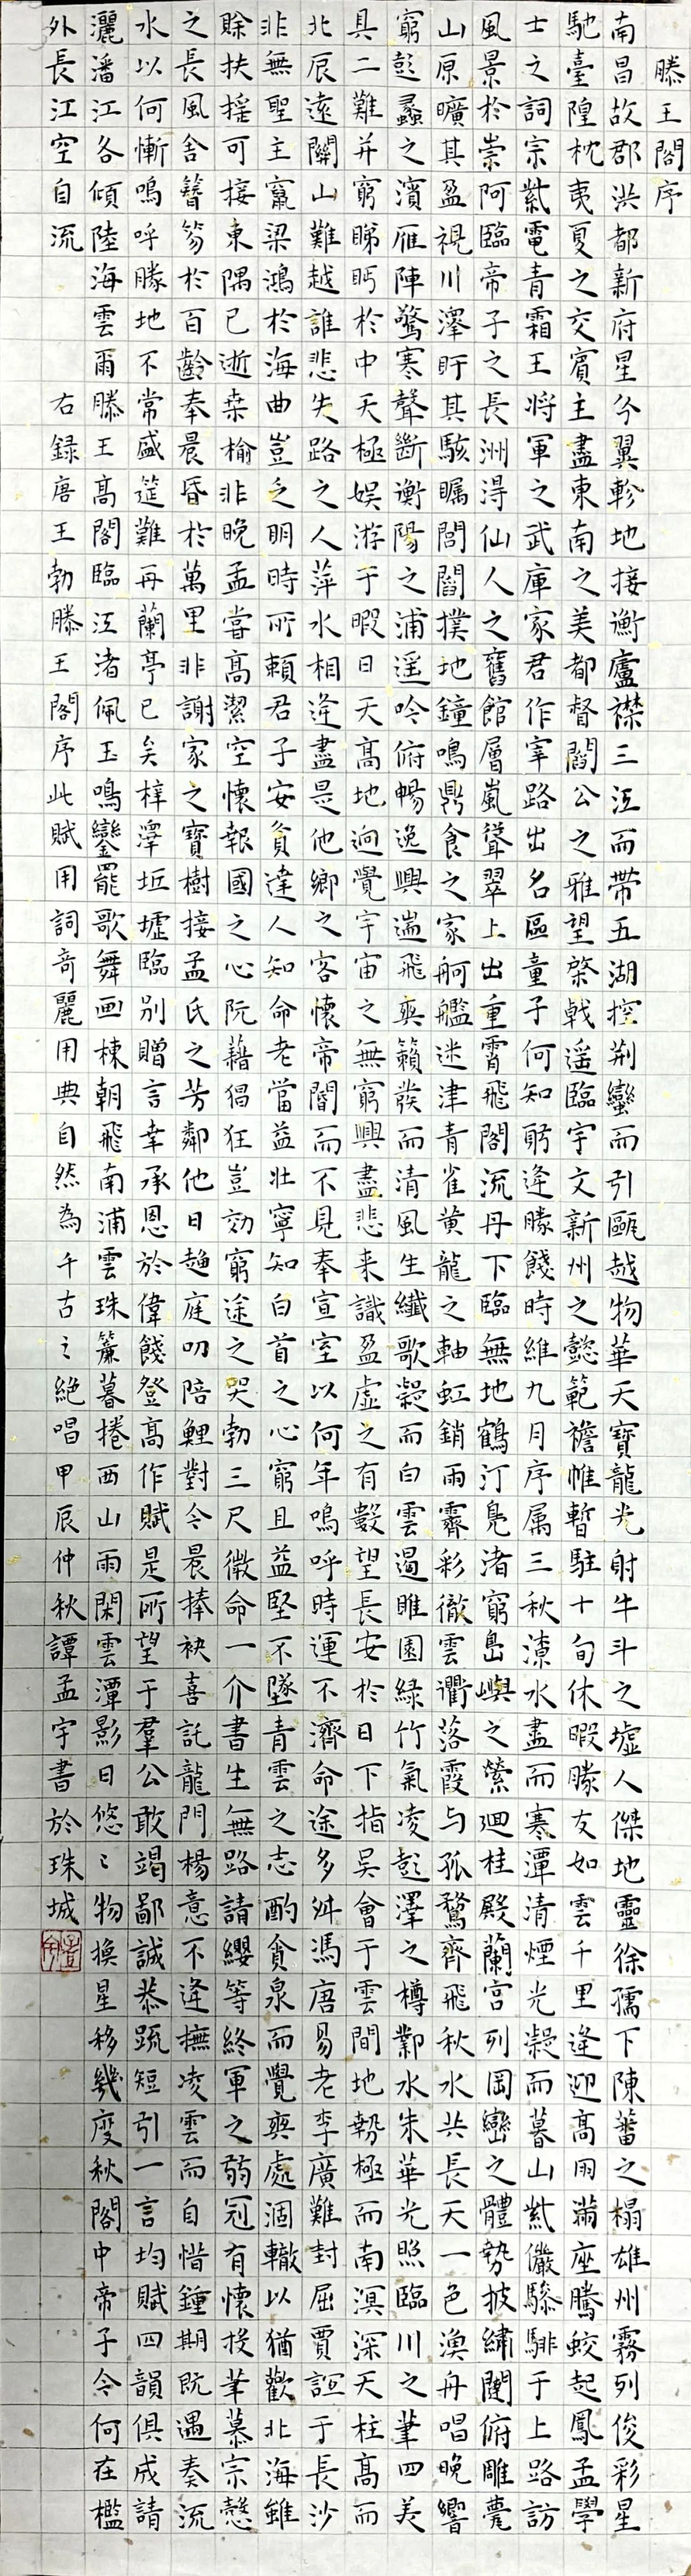 滕王閣序
南昌故郡洪都新府星分翼軫地接衡廬襟三江而帶五湖控荆蠻而引甌越物華天寶龍光射牛斗之墟人傑地靈徐孺下陳蕃之榻雄州霧列俊彩星
馳臺隍枕夷夏之交賓主盡東南之美都督閻公之雅望棨戟遥臨宇文新州之懿範襜帷暫駐十旬休暇勝友如雲千里逢迎高朋滿座騰蛟起鳳孟學
士之詞宗紫電青霜王将軍之武庫家君作宰路出名區童子何知躬逢勝餞時維九月序属三秋潦水盡而寒潭清煙光凝而暮山紫儼驂騑于上路訪
風景於崇阿臨帝子之長洲得仙人之舊館層嵐聳翠上出重霄飛閣流丹下臨無地鶴汀鳧渚窮島嶼之縈迴桂殿蘭宫列岡巒之體勢披繡闥俯雕甍
山原曠其盈視川澤盱其駭矚閭閻撲地鐘鳴鼎食之家舸艦迷津青雀黄龍之軸虹銷雨霽彩徹雲衢落霞与孤鶩齊飛秋水共長天一色漁舟唱晚響
窮彭蠡之濱雁陣驚寒聲斷衡陽之浦遥吟俯暢逸興遄飛爽籟發而清風生纖歌凝而白雲遏睢園緑竹氣凌彭澤之樽鄴水朱華光照臨川之筆四美
具二難并窮睇眄於中天極娱游于暇日天高地迥覺宇宙之無窮興盡悲来識盈虚之有數望長安於日下指吴會于雲間地勢極而南溟深天柱高而
北辰遠關山難越誰悲失路之人萍水相逢盡是他鄉之客懷帝閽而不見奉宣室以何年嗚呼時運不濟命途多舛馮唐易老李廣難封屈賈誼于長沙
非無聖主竄梁鴻於海曲豈乏明時所賴君子安貧達人知命老當益壯寧知白首之心窮且益堅不墜青雲之志酌貪泉而覺爽處涸轍以猶歡北海雖
賒扶摇可接東隅已逝桑榆非晚孟嘗高潔空懷報國之心阮藉猖狂豈効窮途之哭勃三尺微命一介書生無路請纓等終軍之弱冠有懷投筆慕宗慤
之長風舍簪笏於百齡奉晨昏於萬里非謝家之寶樹接孟氏之芳鄰他日趨庭叨陪鯉對今晨捧袂喜託龍門楊意不逢撫凌雲而自惜鍾期既遇奏流
水以何慚嗚呼勝地不常盛筵難再蘭亭已矣梓澤坵墟臨别贈言幸承恩於偉餞登高作賦是所望于羣公敢竭鄙誠恭疏短引一言均賦四韻俱成請
灑潘江各傾陸海雲爾滕王高閣臨江渚佩玉鳴鑾罷歌舞画棟朝飛南浦雲珠簾暮捲西山雨閑雲潭影日悠〻物換星移幾度秋閣中帝子今何在檻
外長江空自流
右録唐王勃滕王閣序此賦用詞奇麗用典自然為千古之絶唱甲辰仲秋譚孟宇書於珠城